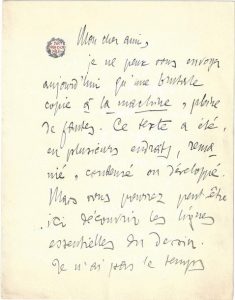 Mon cher ami,
je ne peux vous envoyer
aujourd'hui qu'une brutale
copie à la machine, pleine
de fautes. Ce texte a été,
en plusieurs endroits, rema
nié, condensé ou développé.
Mais vous pourrez peut-être
ici découvrir les lignes
essentielles du dessin.
Je n'ai pas le temps